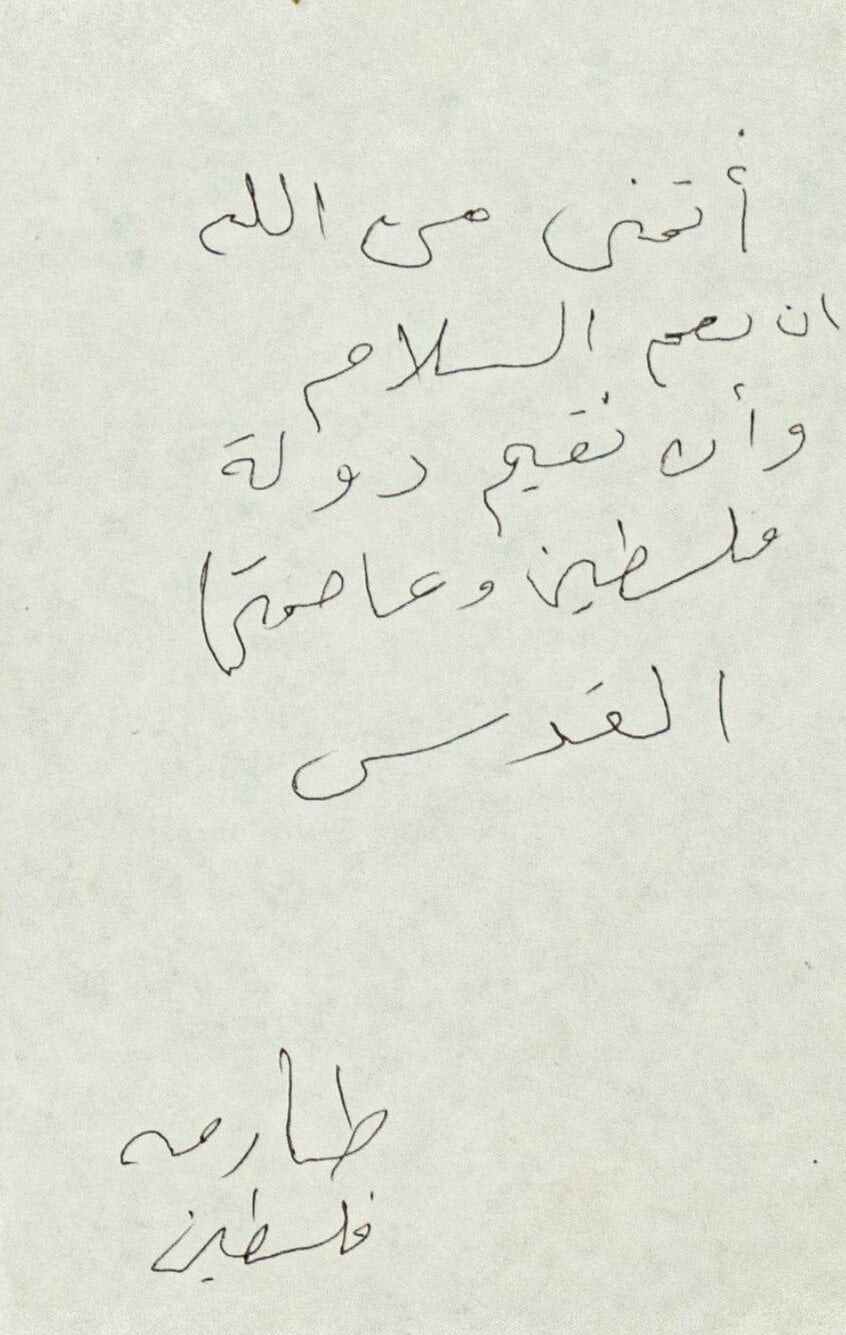 أتمنى من الله
ان يعم السلام
وأن نقيم دولة
فلسطين وعاصمتها
القدس
طارق
فلسطين